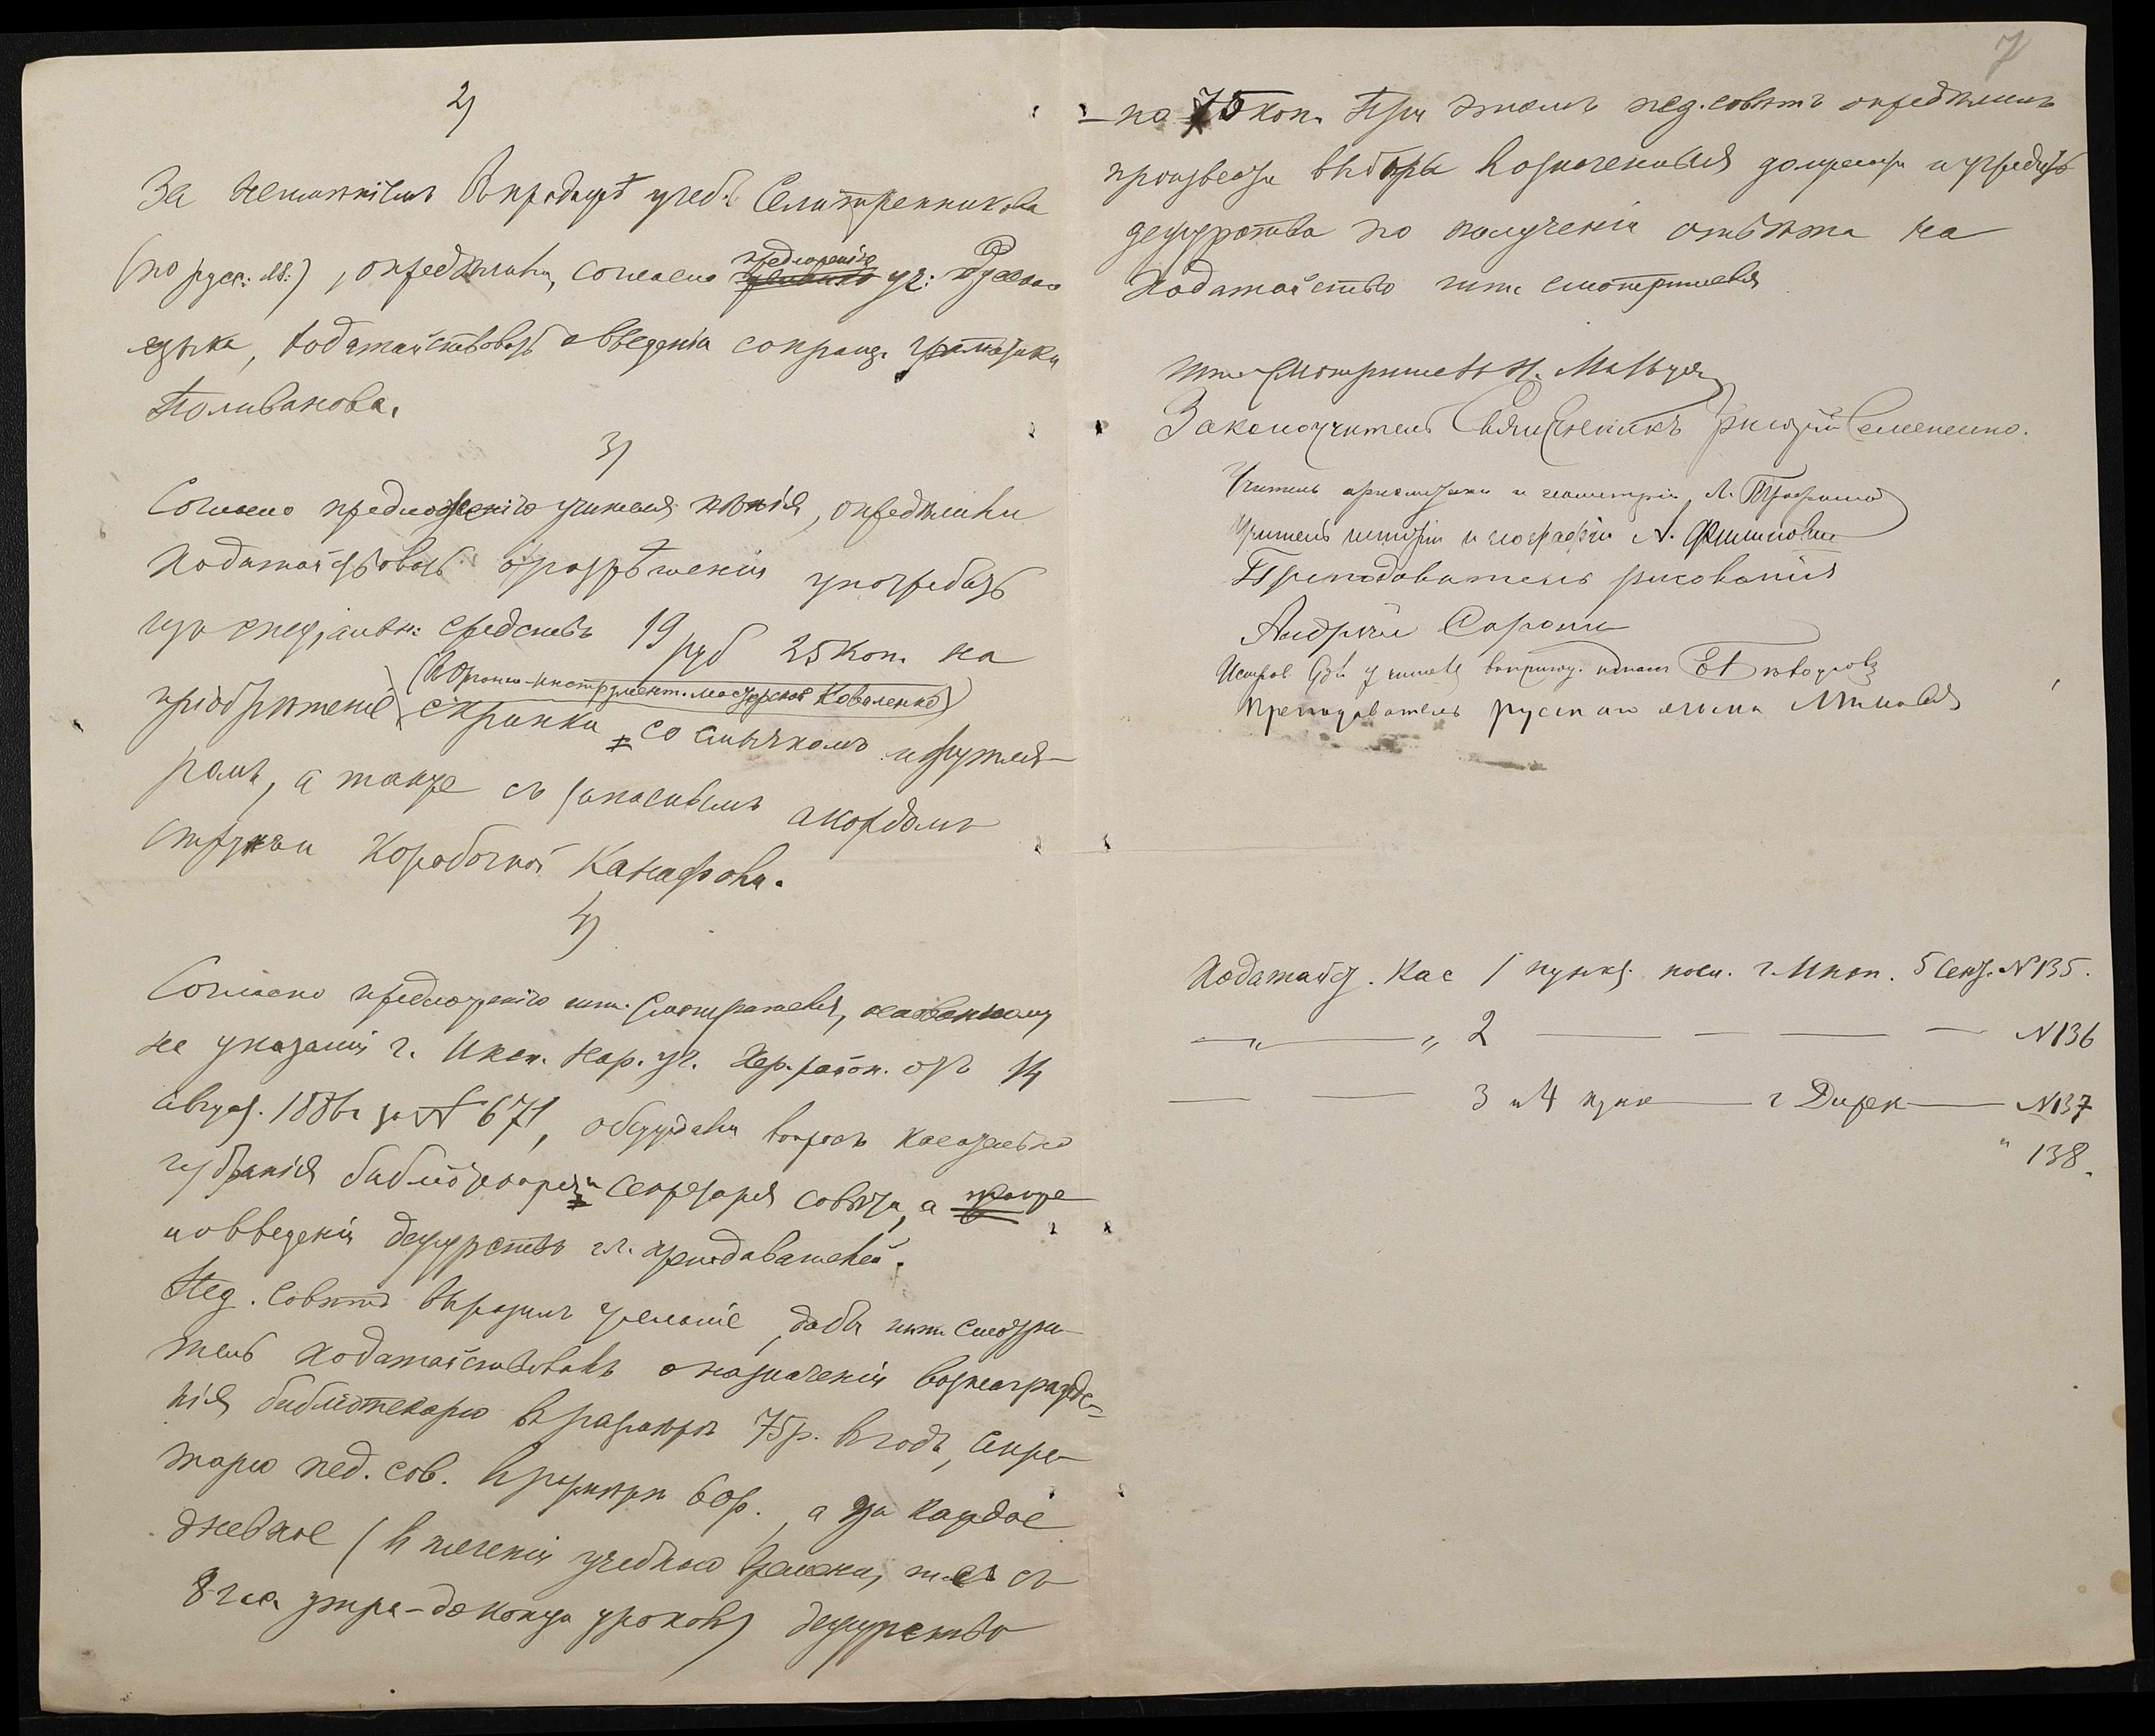 2)
За неимѣніемъ въ продажѣ учеб. Селитренникова
(по русс: яз:), опредѣлили, согласно предложенію уч: Русскаго
языка, ходатайствовать о введеніи сокращ. грамматики
Поливанова.
3)
Согласно предложенію учителя пѣнія, опредѣлили
ходатайствовать о разрѣшеніи употребить
изъ спеціальн: средствъ 19 руб 25 коп. на
пріобрѣтеніе (въ Органо-инструмент. мастерской Коваленко)
скрипки со смычкомъ и футля-
ромъ, а также съ запаснымъ акордомъ
струнъ и коробочкой канифоли.
4)
Согласно предложенію шт. Смотрителя, основанному
на указаніи г. Инсп. нар. уч. Хер. район. отъ 14
август. 1886 г за № 671, обсуждали вопросъ касательно
избранія библіотекаря и секретаря совѣта, а также
и о введеніи дежурствъ г.г. преподавателей.
Пед. Совѣтъ выразилъ желаніе, дабы шт. Смотри-
тель ходатайствовалъ о назначеніи вознагражде-
нія библіотекарю въ размѣрѣ 75 р. въ годъ, секре-
тарю пед. сов. въ размѣрѣ 60 р., а за каждое
дневное (въ теченіи учебнаго времени, т.е. съ
8 час. утра - до конца уроковъ) дежурство
7
- по 75 коп. При этомъ пед. совѣтъ опредѣлилъ
произвести выборы въ означенныя должности и учредить
дежурства по полученіи отвѣта на
ходатайство шт. смотрителя
Шт. Смотритель Н.
Законоучитель Священникъ Григорій Семененко.
Учитель ариѳметики и геометріи, Л. Трофимов
Учитель исторіи и географіи А. Филипович
Преподаватель рисованія
Андрей
Исправ. дол. учителя
Преподаватель русскаго языка
Ходатайст. кас 1 пункт. посл. г. Инсп. 5 Сент. № 135.
— „ — „ 2 — — — — № 136
— — 3 и 4 пунк — г Дирек — № 137
" 138.